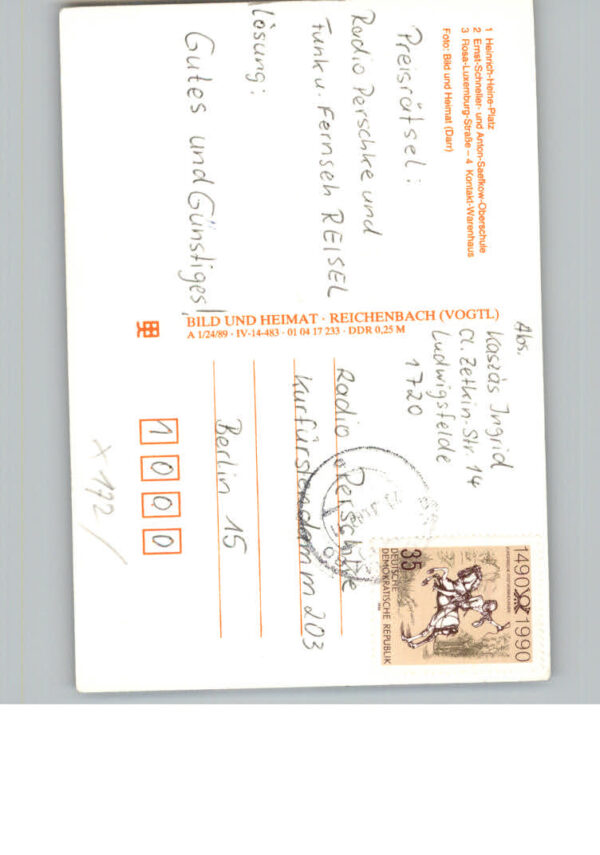 1 Heinrich-Heine-Platz
2 Ernst-Schneller- und Anton-Saefkow-Oberschule
3 Rosa-Luxemburg-Straße – 4 Kontakt-Warenhaus
Foto: Bild und Heimat (Darr)
Preisrätsel:
Radio Perschke und
Funk u. Fernseh REISEL
Lösung:
Gutes und Günstiges!
BILD UND HEIMAT · REICHENBACH (VOGTL)
A 1/24/89 · IV-14-483 · 01 04 17 233 · DDR 0,25 M
Abs.
Kaszás Ingrid
Cl. Zetkin-Str. 14
Ludwigsfelde
1720
1490 1990
35
DEUTSCHE
DEMOKRATISCHE REPUBLIK
Radio Perschke
Kurfürstendamm 203
Berlin 15
1 0 0 0
x 192/